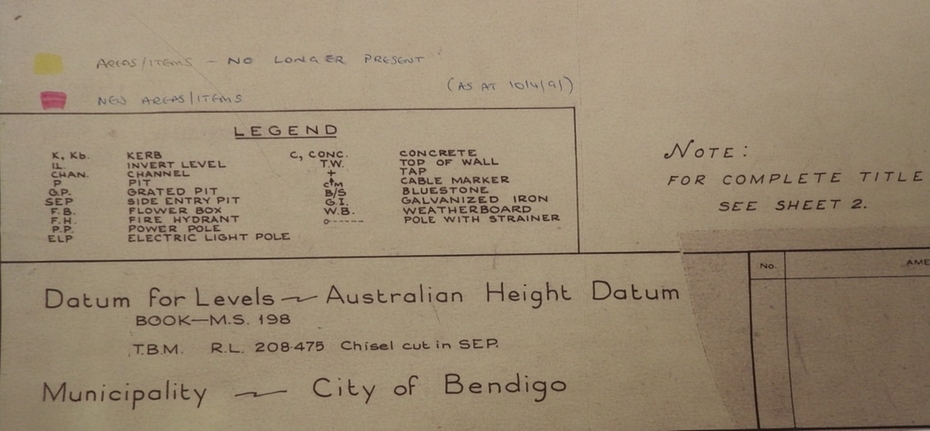 AREAS/ITEMS - NO LONGER PRESENT
(AS AT 10/4/91)
NEW AREAS/ITEMS
LEGEND
K, Kb. KERB
IL. INVERT LEVEL
CHAN. CHANNEL
P PIT
G.P. GRATED PIT
SEP SIDE ENTRY PIT
F.B. FLOWER BOX
F.H. FIRE HYDRANT
P.P. POWER POLE
ELP ELECTRIC LIGHT POLE
C, CONC. CONCRETE
T.W. TOP OF WALL
+ TAP
CM CABLE MARKER
B/S BLUESTONE
G.I. GALVANIZED IRON
W.B. WEATHERBOARD
POLE WITH STRAINER
NOTE:
FOR COMPLETE TITLE
SEE SHEET 2.
Datum for Levels ~ Australian Height Datum
BOOK—M.S. 198
T.B.M. R.L. 208·475 Chisel cut in SEP.
Municipality ~ City of Bendigo
No. AME